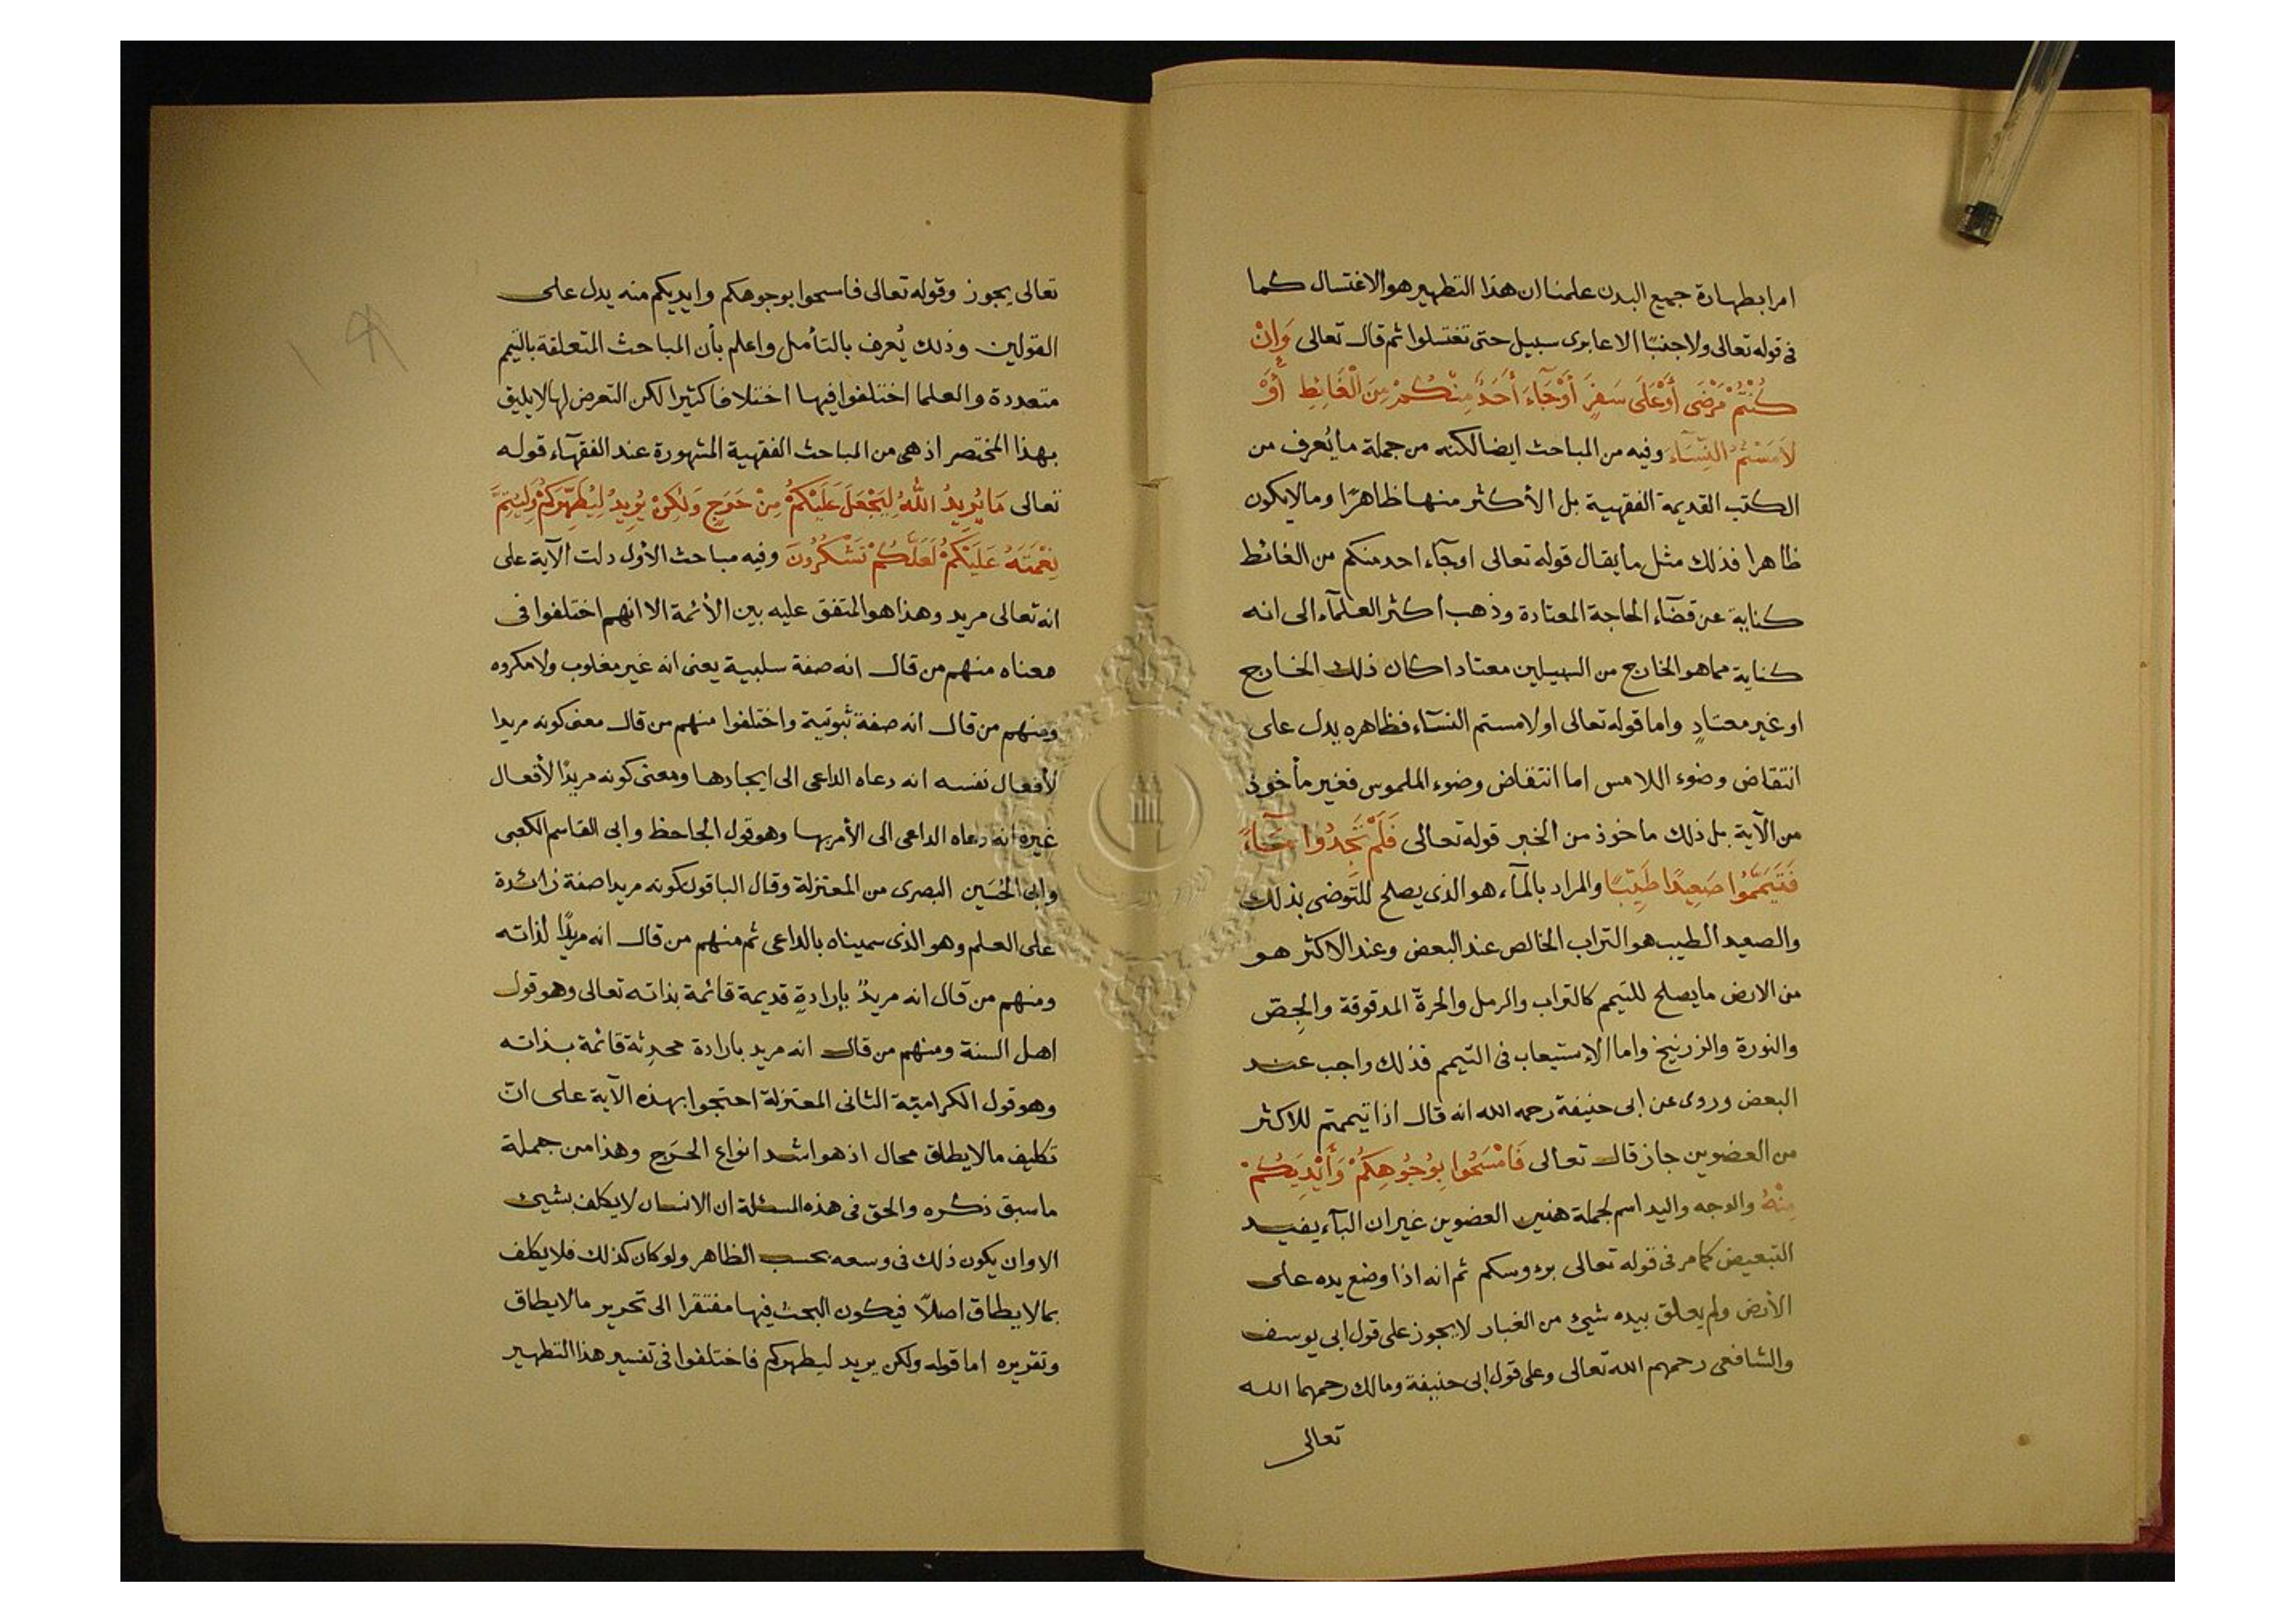 امرا بطهارة جميع البدن علمنا ان هذا التطهير هو الاغتسال كما
فى قوله تعالى ولا جنبًا الا عابرى سبيل حتى تغتسلوا ثم قال تعالى وَإِنْ
كُنْتُمْ مَرْضَى أَوْ عَلَى سَفَرٍ أَوْ جَآءَ أَحَدٌ مِنْكُمْ مِنَ الْغَائِطِ أَوْ
لَامَسْتُمُ النِّسَآءَ وفيه من المباحث ايضا لكنه من جملة ما يُعرف من
الكتب القديمة الفقهية بل الأكثر منها ظاهرًا وما لا يكون
ظاهرا فذلك مثل ما يقال قوله تعالى اوجآء احد منكم من الغائط
كناية عن قضآء الحاجة المعتادة وذهب أكثر العلمآء الى انه
كناية مما هو الخارج من السبيلين معتادا كان ذلك الخارج
او غير معتادٍ واما قوله تعالى اولامستم النسآء فظاهره يدل على
انتقاض وضوء اللامس اما انتقاض وضوء الملموس فغير مأخوذ
من الآية بل ذلك ماخوذ من الخبر قوله تعالى فَلَمْ تَجِدُوا مَآءً
فَتَيَمَّمُوا صَعِيدًا طَيِّبًا والمراد بالمآء هو الذى يصلح للتوضى بذلك
والصعيد الطيب هو التراب الخالص عند البعض وعند الاكثر هو
من الارض ما يصلح للتيمم كالتراب والرمل والحرة المدقوقة والجِصّ
والنورة والزرنيخ واما الإستيعاب فى التيمم فذلك واجب عند
البعض وروى عن ابى حنيفة رحمه الله انه قال اذا تيممتم للاكثر
من العضوين جاز قال تعالى فَامْسَحُوا بِوُجُوهِكُمْ وَأَيْدِيَكُمْ
مِنْهُ والوجه واليد اسم لجملة هذين العضوين غير ان البآء يفيد
التبعيض كما مر فى قوله تعالى برءوسكم ثم انه اذا وضع يده على
الأرض ولم يعلق بيده شئ من الغبار لا يجوز على قول ابى يوسف
والشافعى رحمهم الله تعالى وعلى قول ابى حنيفة ومالك رحمهما الله
تعالى
تعالى يجوز وقوله تعالى فامسحوا بوجوهكم وايديكم منه يدل على
القولين وذلك يُعرف بالتأمل واعلم بأن المباحث المتعلقة بالتيمم
متعددة والعلما اختلفوا فيها اختلافا كثيرا لكن التعرض لها لا يليق
بهذا المختصر اذ هى من المباحث الفقهية المشهورة عند الفقهآء قوله
تعالى مَا يُرِيدُ اللّٰهُ لِيَجْعَلَ عَلَيْكُمْ مِنْ حَرَجٍ وَلٰكِنْ يُرِيدُ لِيُطَهِّرَكُمْ وَلِيُتِمَّ
نِعْمَتَهُ عَلَيْكُمْ لَعَلَّكُمْ تَشْكُرُونَ وفيه مباحث الأول دلت الآية على
انه تعالى مريد وهذا هو المتفق عليه بين الأئمة الا انهم اختلفوا فى
معناه منهم من قال انه صفة سلبية يعنى انه غير مغلوب ولا مكروه
ومنهم من قال انه صفة ثبوتية واختلفوا منهم من قال معنى كونه مريدا
لأفعال نفسه انه دعاه الداعى الى ايجادها ومعنى كونه مريدًا لأفعال
غيره انه دعاه الداعى الى الأمر بها وهو قول الجاحظ وابى القاسم الكعبى
وابى الحُسَين البصرى من المعتزلة وقال الباقون كونه مريدا صفة زائدة
على العلم وهو الذى سميناه بالداعى ثم منهم من قال انه مريدًا لذاته
ومنهم من قال انه مريدٌ بإرادةٍ قديمة قائمة بذاته تعالى وهو قول
اهل السنة ومنهم من قال انه مريد بارادة محدثة قائمة بذاته
وهو قول الكرامية الثانى المعتزلة احتجوا بهذه الآية على انّ
تكليف ما لا يطاق محال اذ هو اشد انواع الحَرَج وهذا من جملة
ما سبق ذكره والحق فى هذه المسئلة ان الانسان لا يكلف بشيئ
الا وان يكون ذلك فى وسعه بحسب الظاهر ولو كان كذلك فلا يكلف
بما لا يطاق اصلاً فيكون البحث فيها مفتقرا الى تحرير ما لا يطاق
وتقريره اما قوله ولكن يريد ليطهركم فاختلفوا فى تفسير هذا التطهير